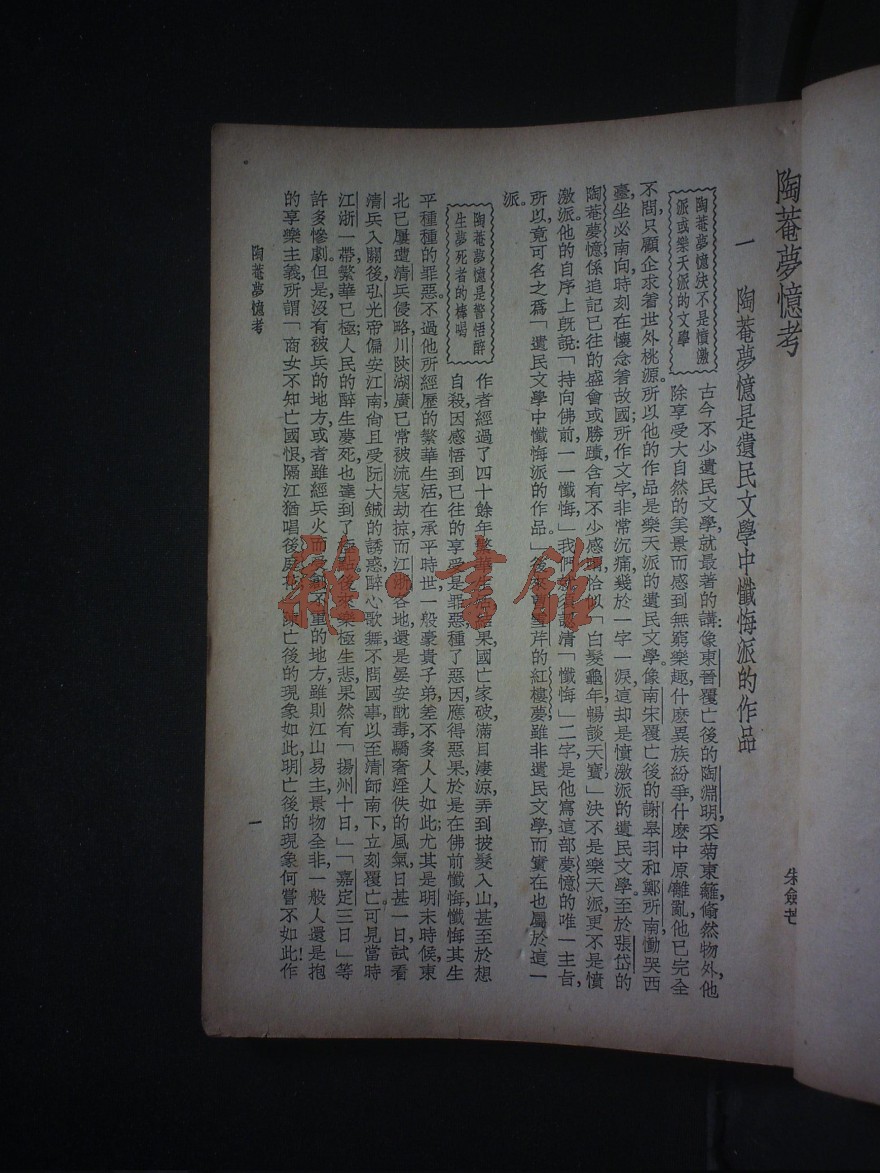 陶菴夢憶考
朱劍芒
一　陶菴夢憶是遺民文學中懺悔派的作品
陶菴夢憶決不是憤激
派或樂天派的文學
古今不少遺民文學，就最著的講：像東晉覆亡後的陶淵明，采菊東籬，翛然物外，他
除享受大自然的美景而感到無窮樂趣，什麽異族紛爭，什麽中原離亂，他已完全
不問，只顧企求着世外桃源。所以他的作品是樂天派的遺民文學。像南宋覆亡後的謝皋羽和鄭所南，慟哭西
臺，坐必南向，時刻在懷念着故國；所作文字，非常沉痛，幾於一字一淚，這却是憤激派的遺民文學。至於張岱的
陶菴夢憶，係追記已往的盛會或勝蹟，含有不少感喟，恰似「白髮龜年暢談天寶」，決不是樂天派，更不是憤
激派。他的自序上旣說：「持向佛前，一一懺悔」，我們就看認清「懺悔」二字是他寫這部夢憶的唯一主旨，
所以竟可名之爲「遺民文學中懺悔派的作品。」後來 雪芹的紅樓夢，雖非遺民文學，而實在也屬於這一
派。
陶菴夢憶是警悟醉
生夢死者的棒喝
作者經過了四十餘年繁華生活，結果國亡家破，滿目淒涼，弄到披髮入山，甚至於想
自殺，因感悟到已往的享受是罪惡，種了惡因，應得惡果，於是在佛前懺悔，懺悔其生
平種種的罪惡。不過他所經歷的繁華生活，在承平時世，一般豪貴子弟，差不多人人如此；尤其是明末時候，東
北已屢遭清兵侵略，川陝湖廣已常被流寇劫掠，而江浙各地還是晏安酖毒，驕奢婬佚的風氣，日甚一日，試看
清兵入關後，弘光帝偏安江南，尙且受阮大鋮的誘惑，醉心歌舞，不問國事，以至清師南下，立刻覆亡。可見當時
江浙一帶，繁華已極；人民的醉生夢死，也達到了極點。後來樂極生悲，果然有「揚州十日」，「嘉定三日」等
許多慘劇。但是，沒有被兵的地方，或者雖經兵火而 不重的地方，雖則江山易主，景物全非，一般人還是抱
的享樂主義，所謂「商女不知亡國恨，隔江猶唱後庭花」，陳亡後的現象如此，明亡後的現象何嘗不如此！作
陶菴夢憶考
一
雜·書館